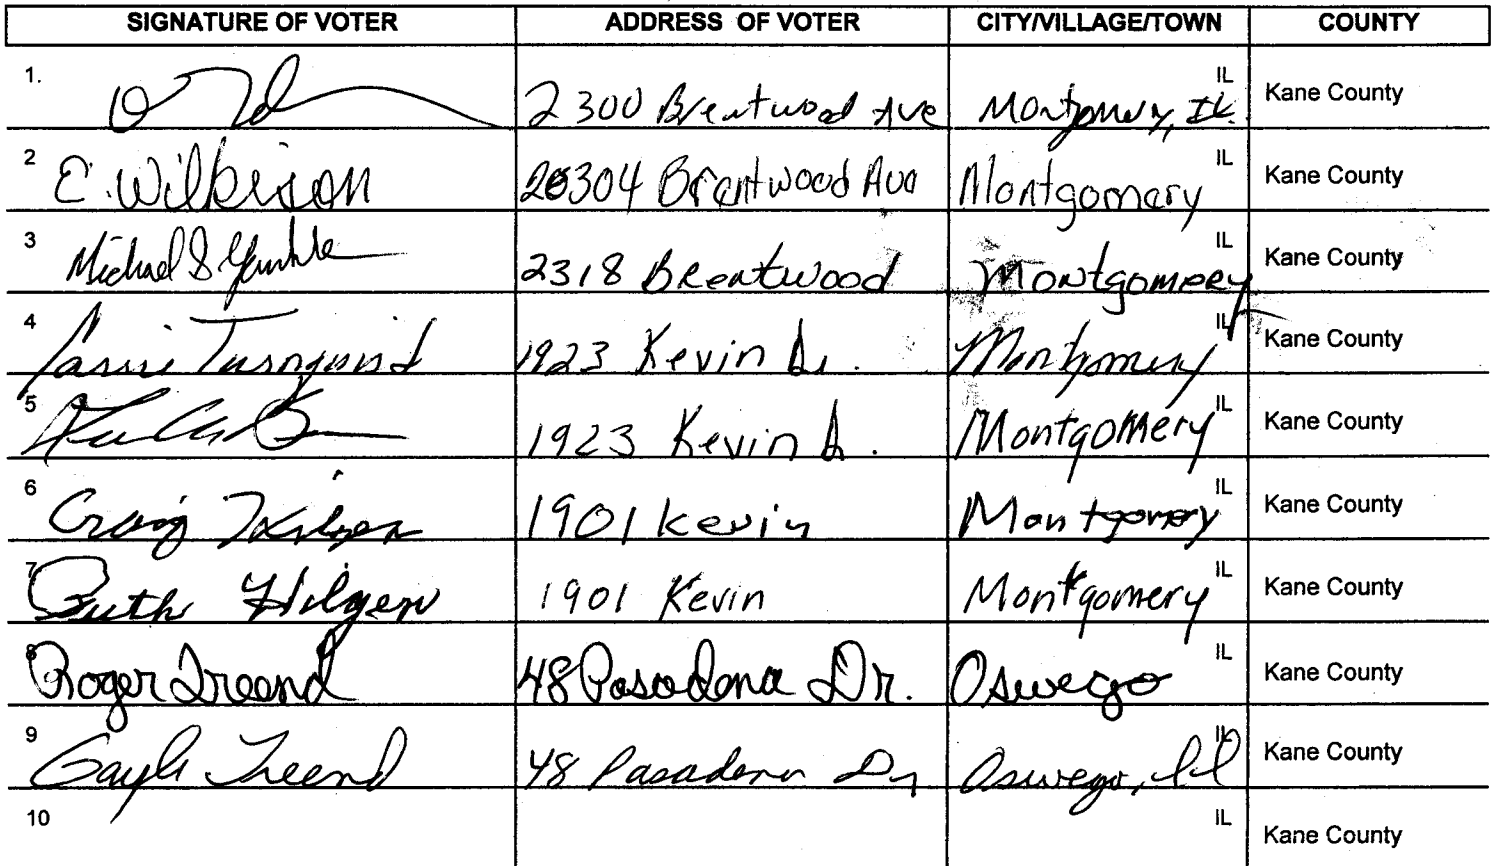 SIGNATURE OF VOTER ADDRESS OF VOTER CITY/VILLAGE/TOWN COUNTY
1. 2300 Brentwood Ave Montgomery, IL IL Kane County
2 E. Wilkerson 20304 Brentwood Ave Montgomery IL Kane County
3 Michael S 2318 Brentwood Montgomery IL Kane County
4 1923 Kevin Dr. Montgomery IL Kane County
5 1923 Kevin Dr. Montgomery IL Kane County
6 Craig Hilgen 1901 Kevin Montgomery IL Kane County
7 Ruth Hilgen 1901 Kevin Montgomery IL Kane County
8 Roger Treend 48 Pasadena Dr. Oswego IL Kane County
9 Gayle Treend 48 Pasadena Dr Oswego, Il IL Kane County
10 IL Kane County